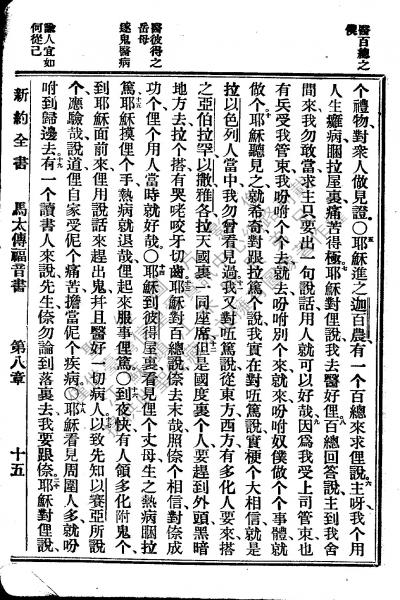 醫百總之
僕
醫彼得之
岳母
逐鬼醫病
論人宜如
何從己
个禮物對衆人做見證〇耶穌進之迦百農有一个百總來求俚說主呀我个用
人生癱病睏拉屋裏痛苦得極耶穌對俚說我去醫好俚百總回答說主到我舍
間來我勿敢當求主只要出一句說話用人就可以好哉因爲我受上司管束也
有兵受我管束我吩咐个个去就去吩咐別个來就來吩咐奴僕做个个事體就
做个耶穌聽見之就希奇對跟拉篤个說我實在對唔篤說實梗个大相信就是
拉以色列人當中我勿曾看見過我又對唔篤說從東方西方有多化人要來搭
之亞伯拉罕以撒雅各拉天國裏一同座席但是國度裏个人要趕到外頭黑暗
地方去拉个搭有哭咾咬牙切齒耶穌對百總說倷去末哉照倷个相信對倷成
功俚个用人當時就好哉〇耶穌到彼得屋裏看見俚个丈母生之熱病睏拉
篤耶穌摸俚个手熱病就退哉俚起來服事俚篤〇到夜快有人領多化附鬼个
到耶穌面前來俚用說話來趕出鬼并且醫好一切病人以致先知以賽亞所說
个應驗哉說道俚自家受伲个痛苦擔當伲个疾病〇耶穌看見周圍人多就吩
咐到歸邊去有一个讀書人來說先生倷勿論到落裏去我要跟倷耶穌對俚說
新約全書 馬太傳福音書 第八章 十五